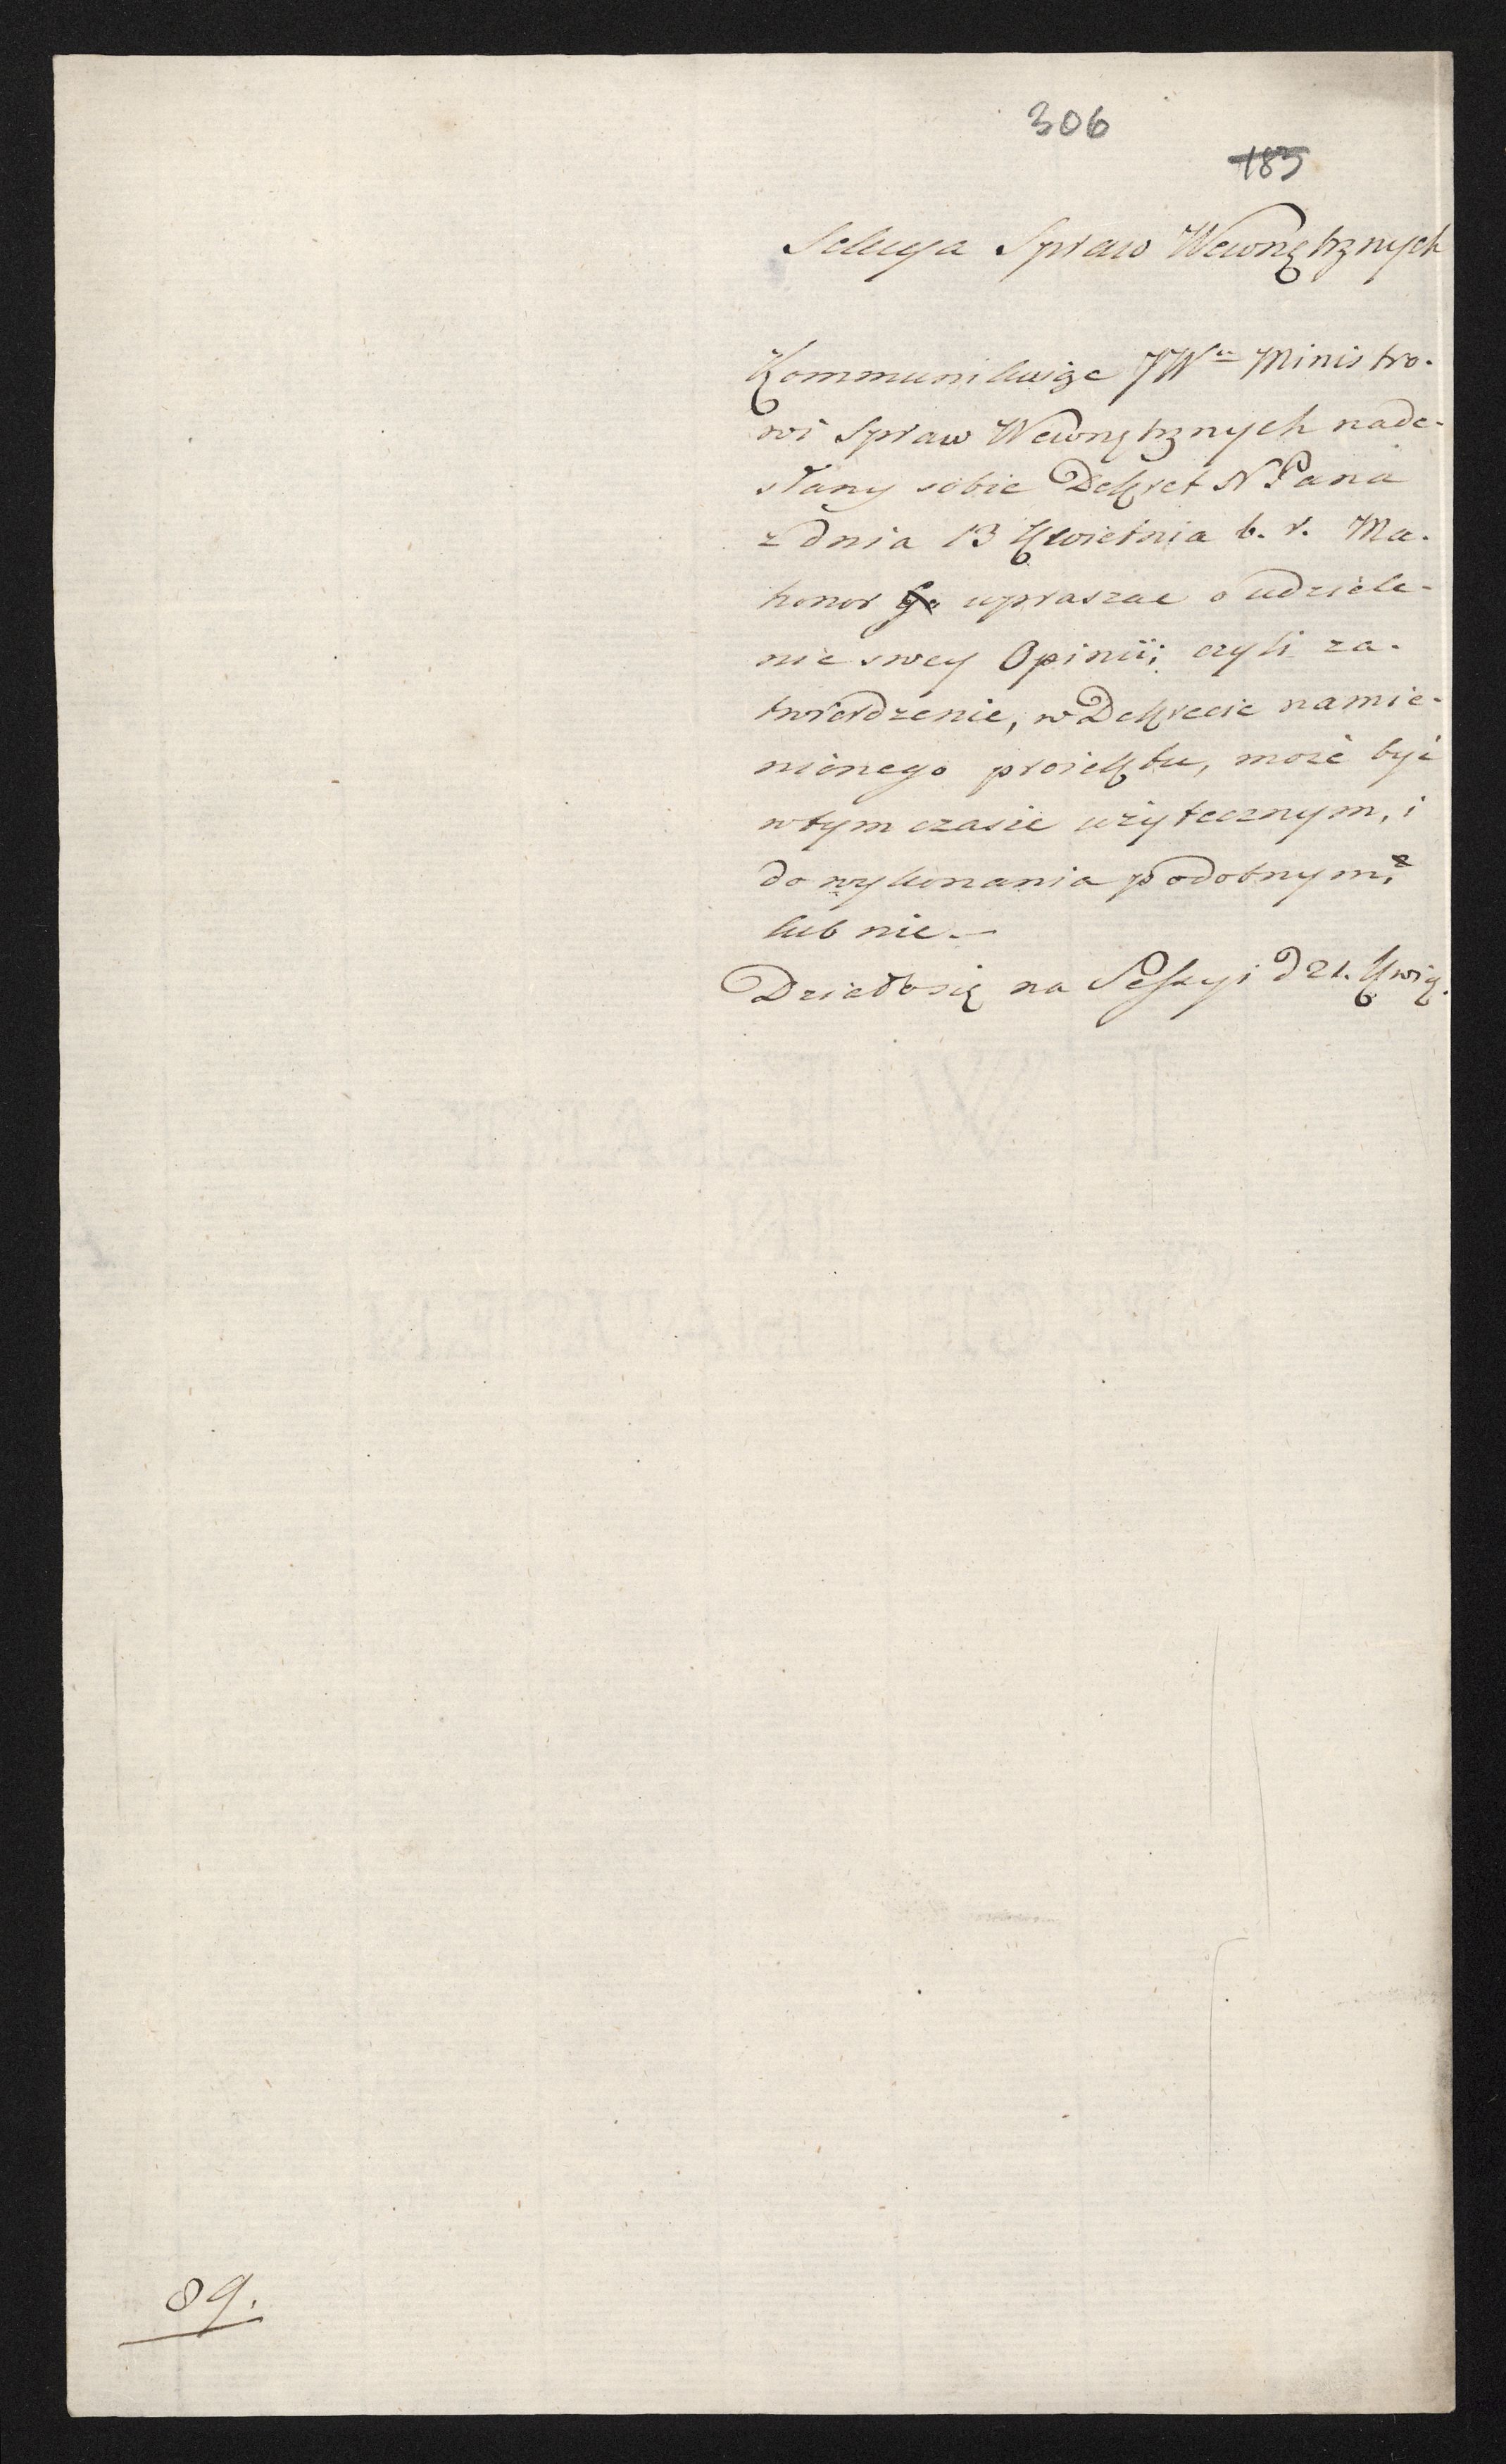 306
185
Sekcya Spraw Wewnętrznych
Kommunikuiąc JW. Ministro-
wi Spraw Wewnętrznych nade-
słany sobie Dekret N Pana
z dnia 13 Kwietnia b. r. Ma.
honor upraszac o udziele-
nie swey Opinii; czyli za-
twierdzenie, w Dekrecie namie-
nionego proiektu, może być
w tym czasie użytecznym, i
do wykonania podobnym,
lub nie.—
Działo się na Sessyi d 21. Kwie.
89.